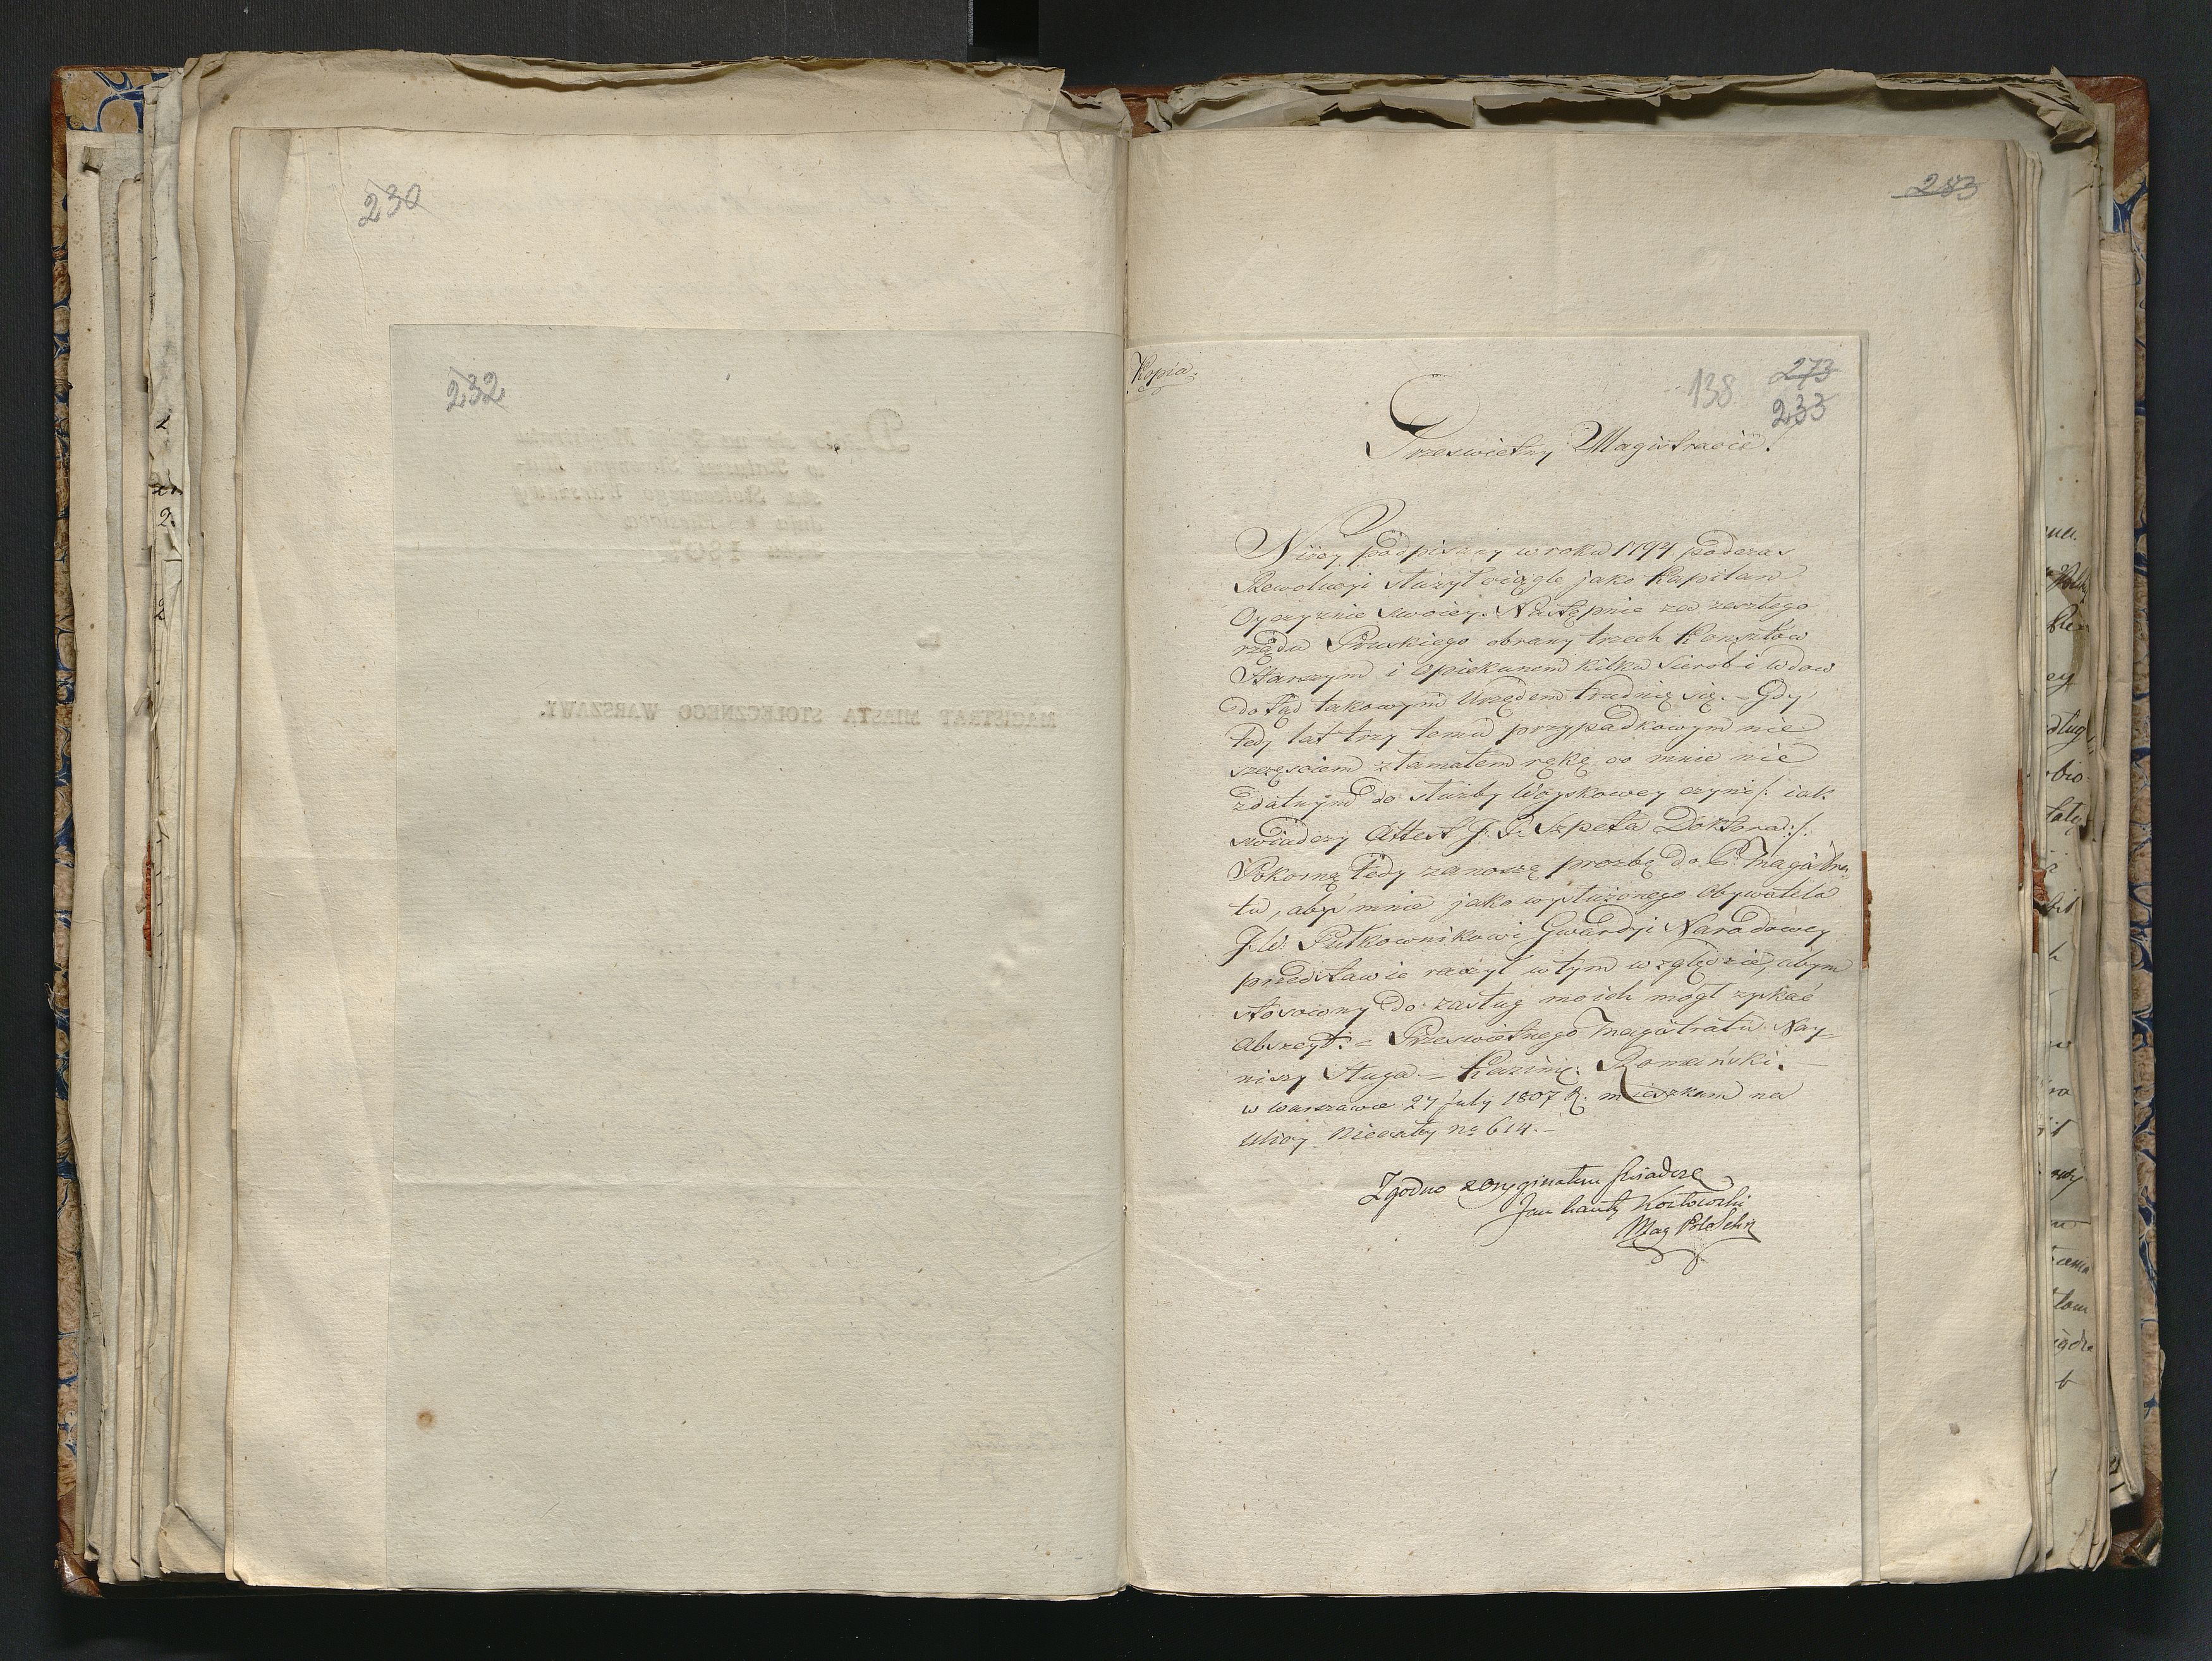 230
232
283
Kopia.
138 273
233
Przeswietny Magistracie!
Niżey podpisany w roku 1794 podczas
Rewolucyi służył ciągle jako Kapitan
Oyczyznie swoiey. Następnie za zeszłego
rządu Pruskiego obrany trzech Konsztów
Starszym i Opiekunem kilku Sierot i wdow
dotąd takowym Urzędem trudnię się. – Gdy
tedy lat trzy temu przypadkowym nie
szczęsciem złamałem rękę co mnie nie
zdatnym do służby Woyskowey czyni /: iak
swiadczy Attest J. P. Szpeta Doktora :/.
Pokorną tedy zanoszę prozbę do P. Magistra=
tu, abyś mnie jako wysłużonego Obywatela
J. W. Pułkownikowi Gwardyi Narodowey
przedstawie raczył w tym względzie, abym
stosowny do zasług moich mógł zyskać
Abszeyt. = Przeswietnego Magistratu Nay=
niszy Sługa – Kazimi: Romański. –
w Warszawie 27 July 1807 R. mieszkam na
Ulicy Niecały no 614. –
Zgodno z Oryginałem świadczę
Jan Kanty Kozłowski
Mag
MAGISTRAT MIASTA STOŁECZNEGO WARSZAWY.